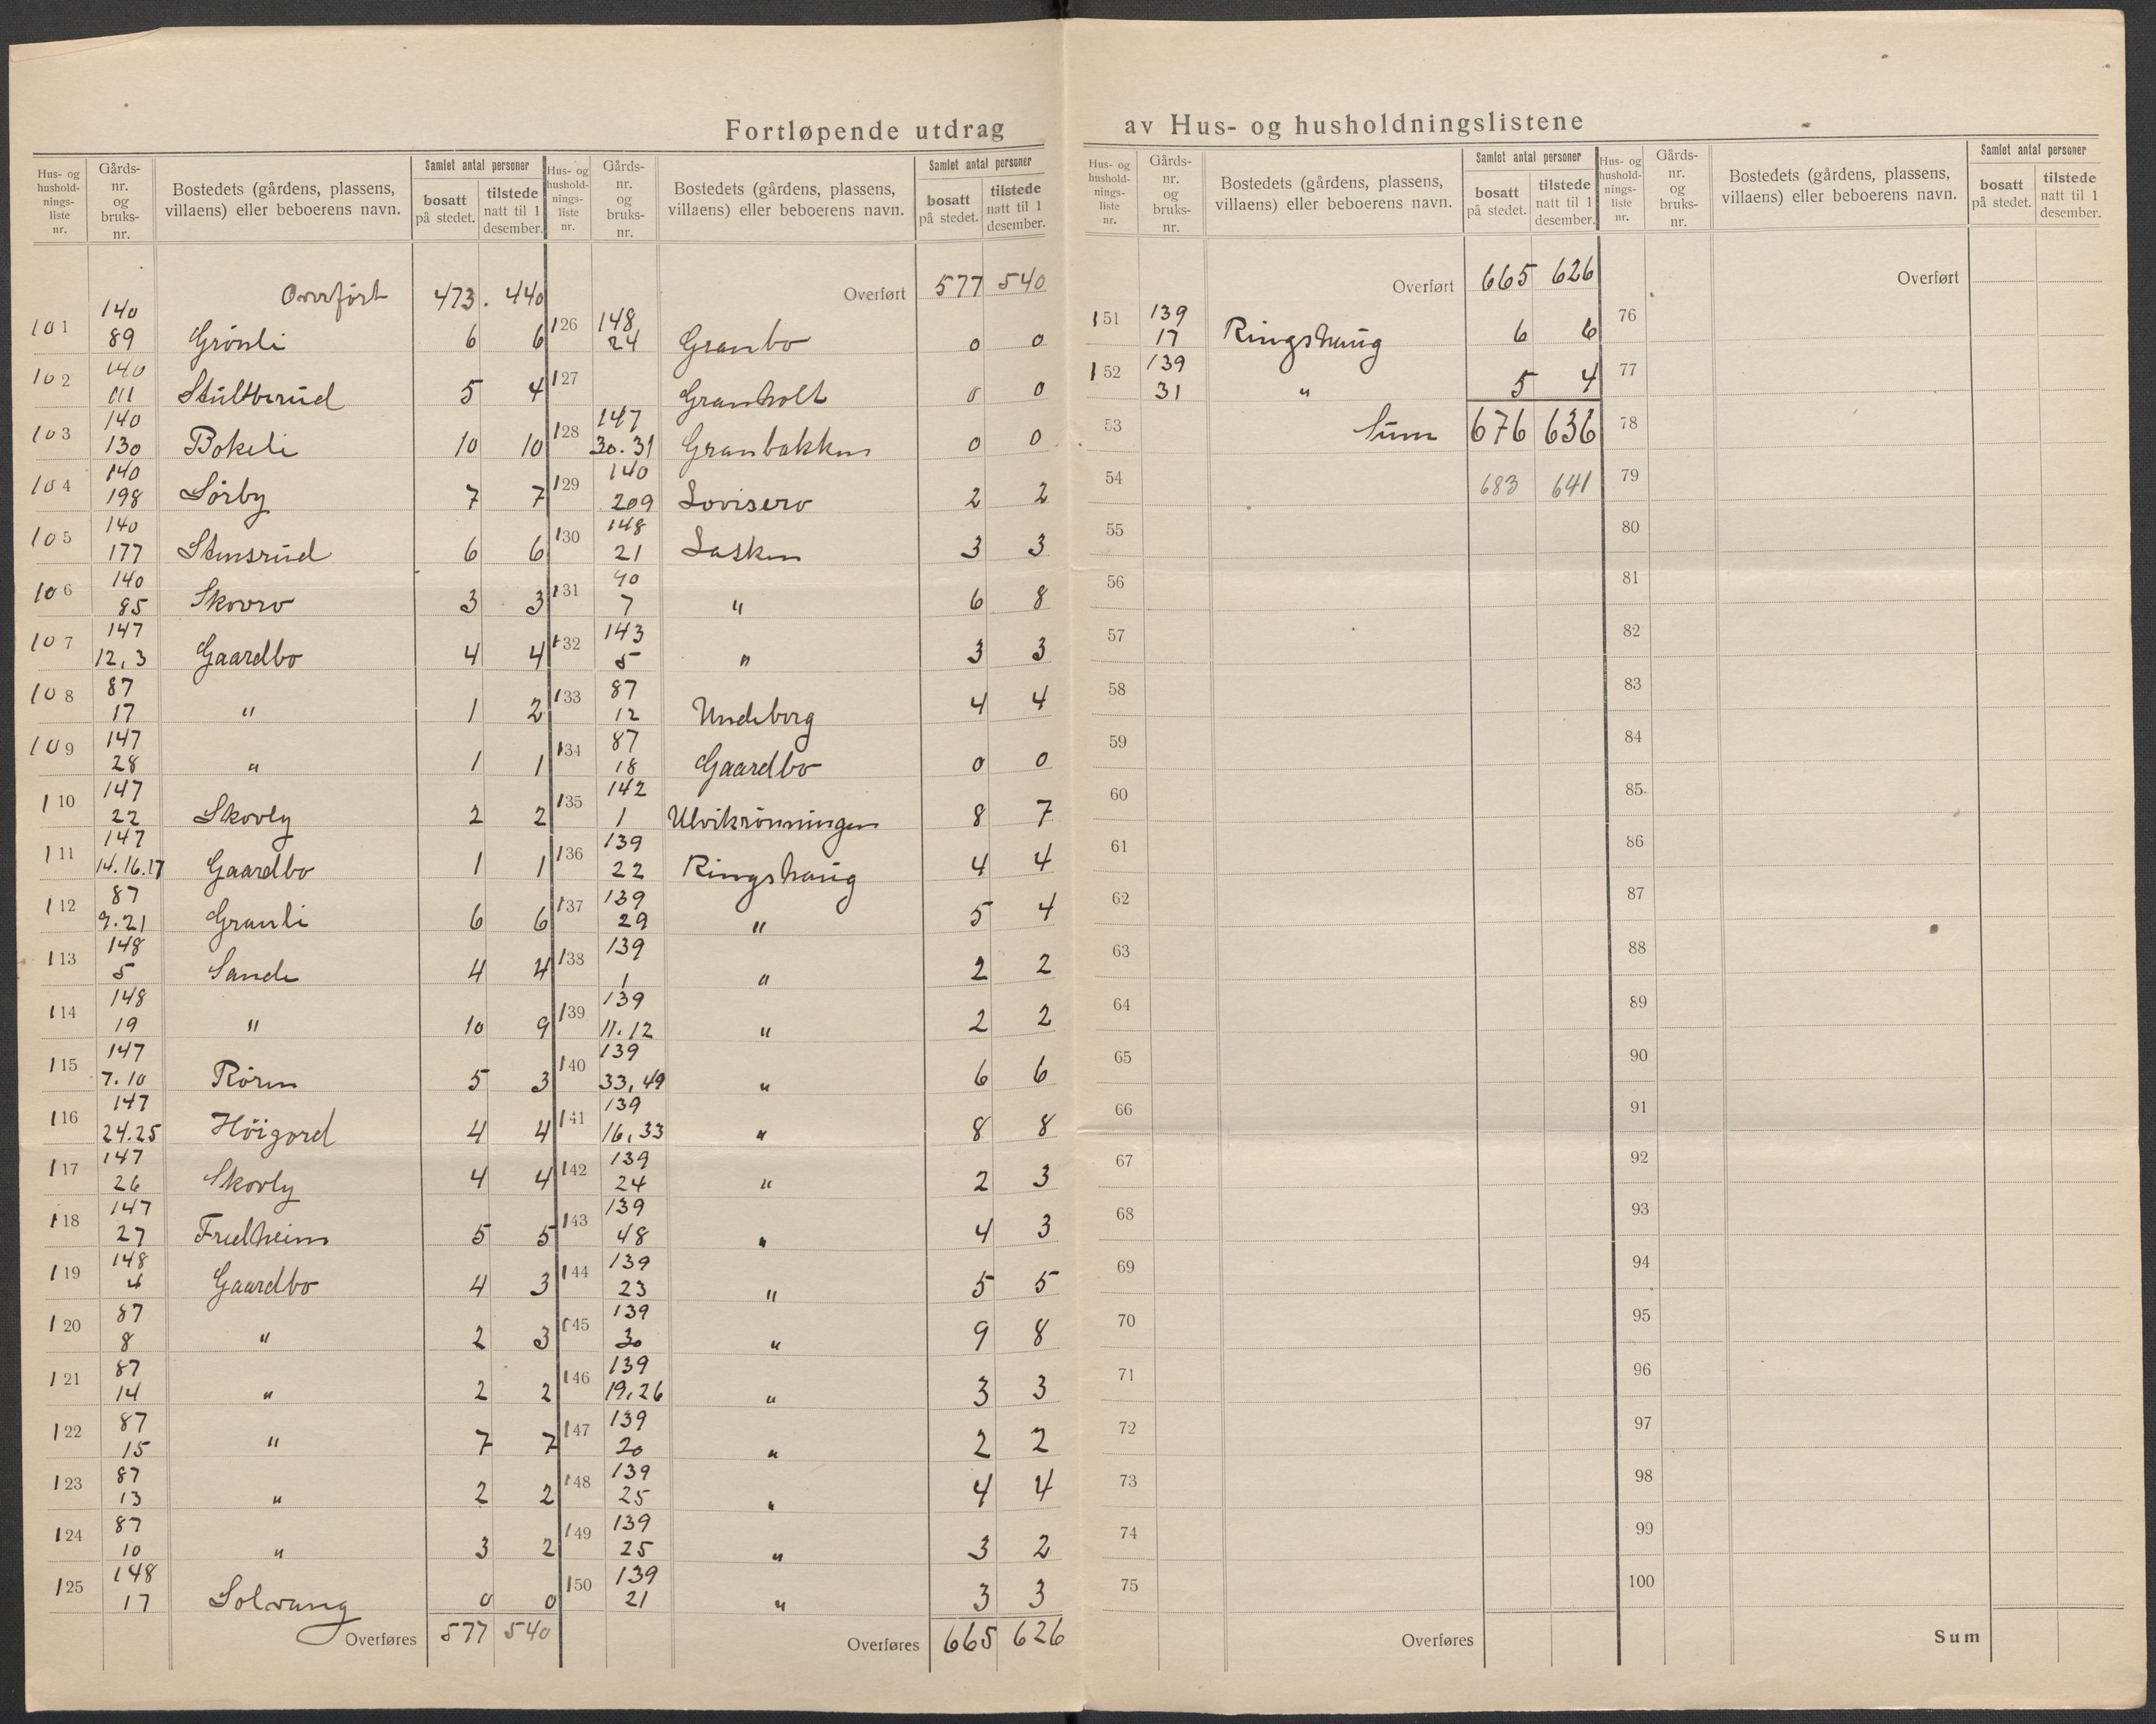 Fortløpende utdrag av Hus- og husholdningslistene
Hus- og hushold-nings-liste nr. | Gårds-nr. og bruks-nr. | Bostedets (gårdens, plassens, villaens) eller beboerens navn. | Samlet antal personer | bosatt på stedet. | tilstede natt til 1 desember.
Overført 473. 440
101 140 89 Grönli 6 6
102 140 111 Stultbrud 5 4
103 140 130 Bokeli 10 10
104 140 198 Sörby 7 7
105 140 177 Stensrud 6 6
106 140 85 Skovro 3 3
107 147 12,3 Gaardbo 4 4
108 87 17 " 1 2
109 147 28 " 1 1
110 147 22 Skovly 2 2
111 147 14.16.17 Gaardbo 1 1
112 87 9.21 Granli 6 6
113 148 5 Sande 4 4
114 148 19 " 10 9
115 147 7.10 Rören 5 3
116 147 24.25 Höigord 4 4
117 147 26 Skovly 4 4
118 147 27 Fredheim 5 5
119 148 4 Gaardbo 4 3
120 87 8 " 2 3
121 87 14 " 2 2
122 87 15 " 7 7
123 87 13 " 2 2
124 87 10 " 3 2
125 148 17 Solvang 0 0
Overføres 577 540
Hus- og hushold-nings-liste nr. | Gårds-nr. og bruks-nr. | Bostedets (gårdens, plassens, villaens) eller beboerens navn. | Samlet antal personer | bosatt på stedet. | tilstede natt til 1 desember.
Overført 577 540
126 148 24 Granbo 0 0
127 Granholt 0 0
128 147 30.31 Granbakken 0 0
129 140 209 Lovisero 2 2
130 148 21 Lasken 3 3
131 90 7 " 6 8
132 143 5 " 3 3
133 87 12 Undeborg 4 4
134 87 18 Gaardbo 0 0
135 142 1 Ulvikrönningen 8 7
136 139 22 Ringshaug 4 4
137 139 29 " 5 4
138 139 1 " 2 2
139 139 11.12 " 2 2
140 139 33,49 " 6 6
141 139 16,33 " 8 8
142 139 24 " 2 3
143 139 48 " 4 3
144 139 23 " 5 5
145 139 30 " 9 8
146 139 19,26 " 3 3
147 139 20 " 2 2
148 139 25 " 4 4
149 139 25 " 3 2
150 139 21 " 3 3
Overføres 665 626
Hus- og hushold-nings-liste nr. | Gårds-nr. og bruks-nr. | Bostedets (gårdens, plassens, villaens) eller beboerens navn. | Samlet antal personer | bosatt på stedet. | tilstede natt til 1 desember.
Overført 665 626
151 139 17 Ringshaug 6 6
152 139 31 " 5 4
53 Sum 676 636
54 683 641
55
56
57
58
59
60
61
62
63
64
65
66
67
68
69
70
71
72
73
74
75
Overføres
Hus- og hushold-nings-liste nr. | Gårds-nr. og bruks-nr. | Bostedets (gårdens, plassens, villaens) eller beboerens navn. | Samlet antal personer | bosatt på stedet. | tilstede natt til 1 desember.
Overført
76
77
78
79
80
81
82
83
84
85
86
87
88
89
90
91
92
93
94
95
96
97
98
99
100
Sum